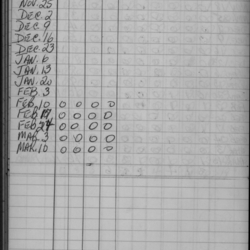 NOV. 25
DEC. 2
DEC. 9
DEC. 16
DEC. 23
JAN. 6
JAN. 13
JAN. 20
FEB. 3
FEB. 10 0 0 0 0
FEB. 17 0 0 0 0
FEB. 24 0 0 0 0
MAR. 3 0 0 0 0
MAR. 10 0 0 0 0